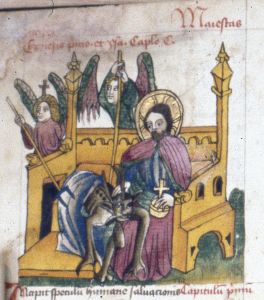 Maiestas
Genesis primo et ysa Caplo C.
Incipit speculu humane saluacionis Capitulu primu